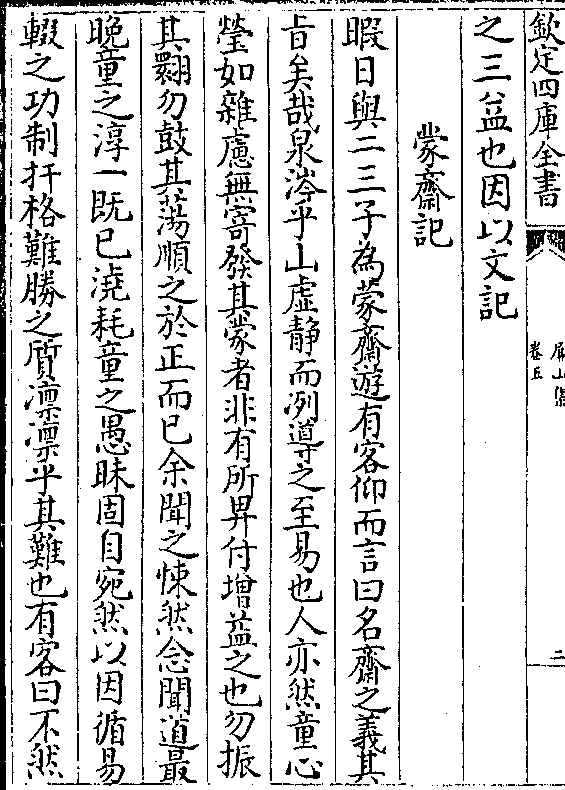 欽定四庫全書
屏山集
卷五
二
之三益也因以文記
蒙齋記
暇日與二三子為蒙齋遊有客仰而言曰名齋之義其
旨矣哉泉涔乎山虚静而冽導之至易也人亦然童心
瑩如雜慮無寄發其蒙者非有所畀付增益之也勿振
其翾勿鼓其蕩順之於正而已余聞之悚然念聞道最
晚童之淳一既已澆耗童之愚昧固自宛然以因循易
輟之功制扞格難勝之質凛凛乎其難也有客曰不然